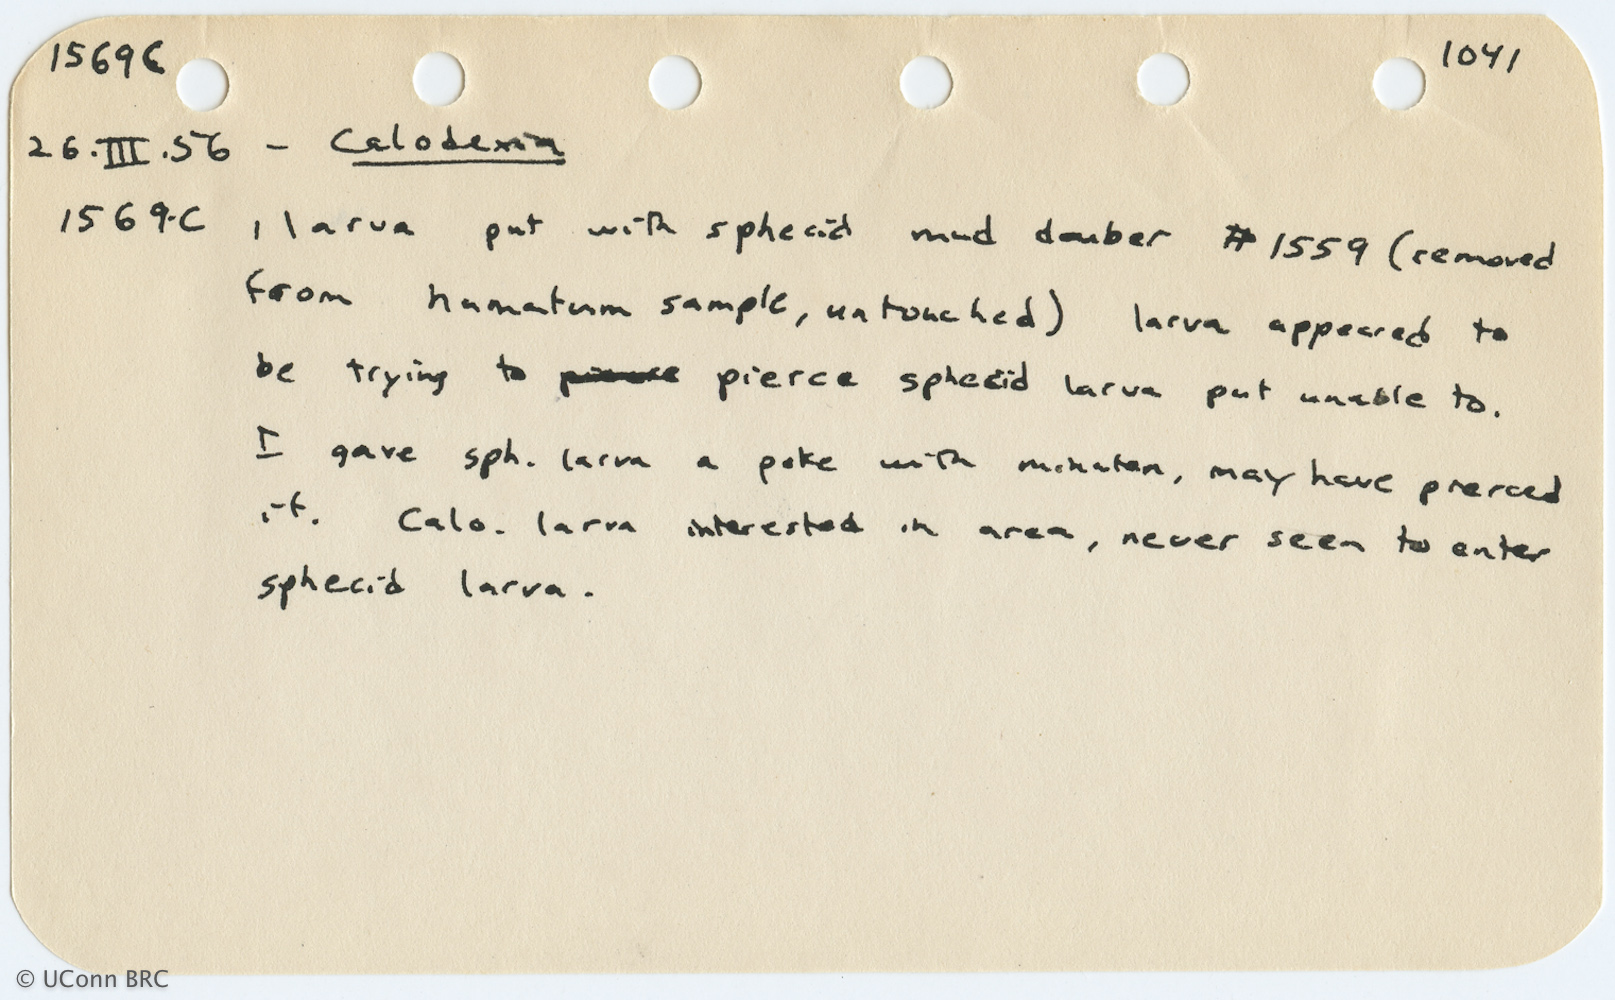 1569C 1041
26.III.56 - Calodexia
1569-C 1 larva put with sphecid mud dauber #1559 (removed
from hamatum sample, untouched) larva appeared to
be trying to pierce sphecid larva put unable to.
I gave sph. larva a poke with minuten, may have pierced
it. Calo. larva interested in area, never seen to enter
sphecid larva.
© UConn BRC